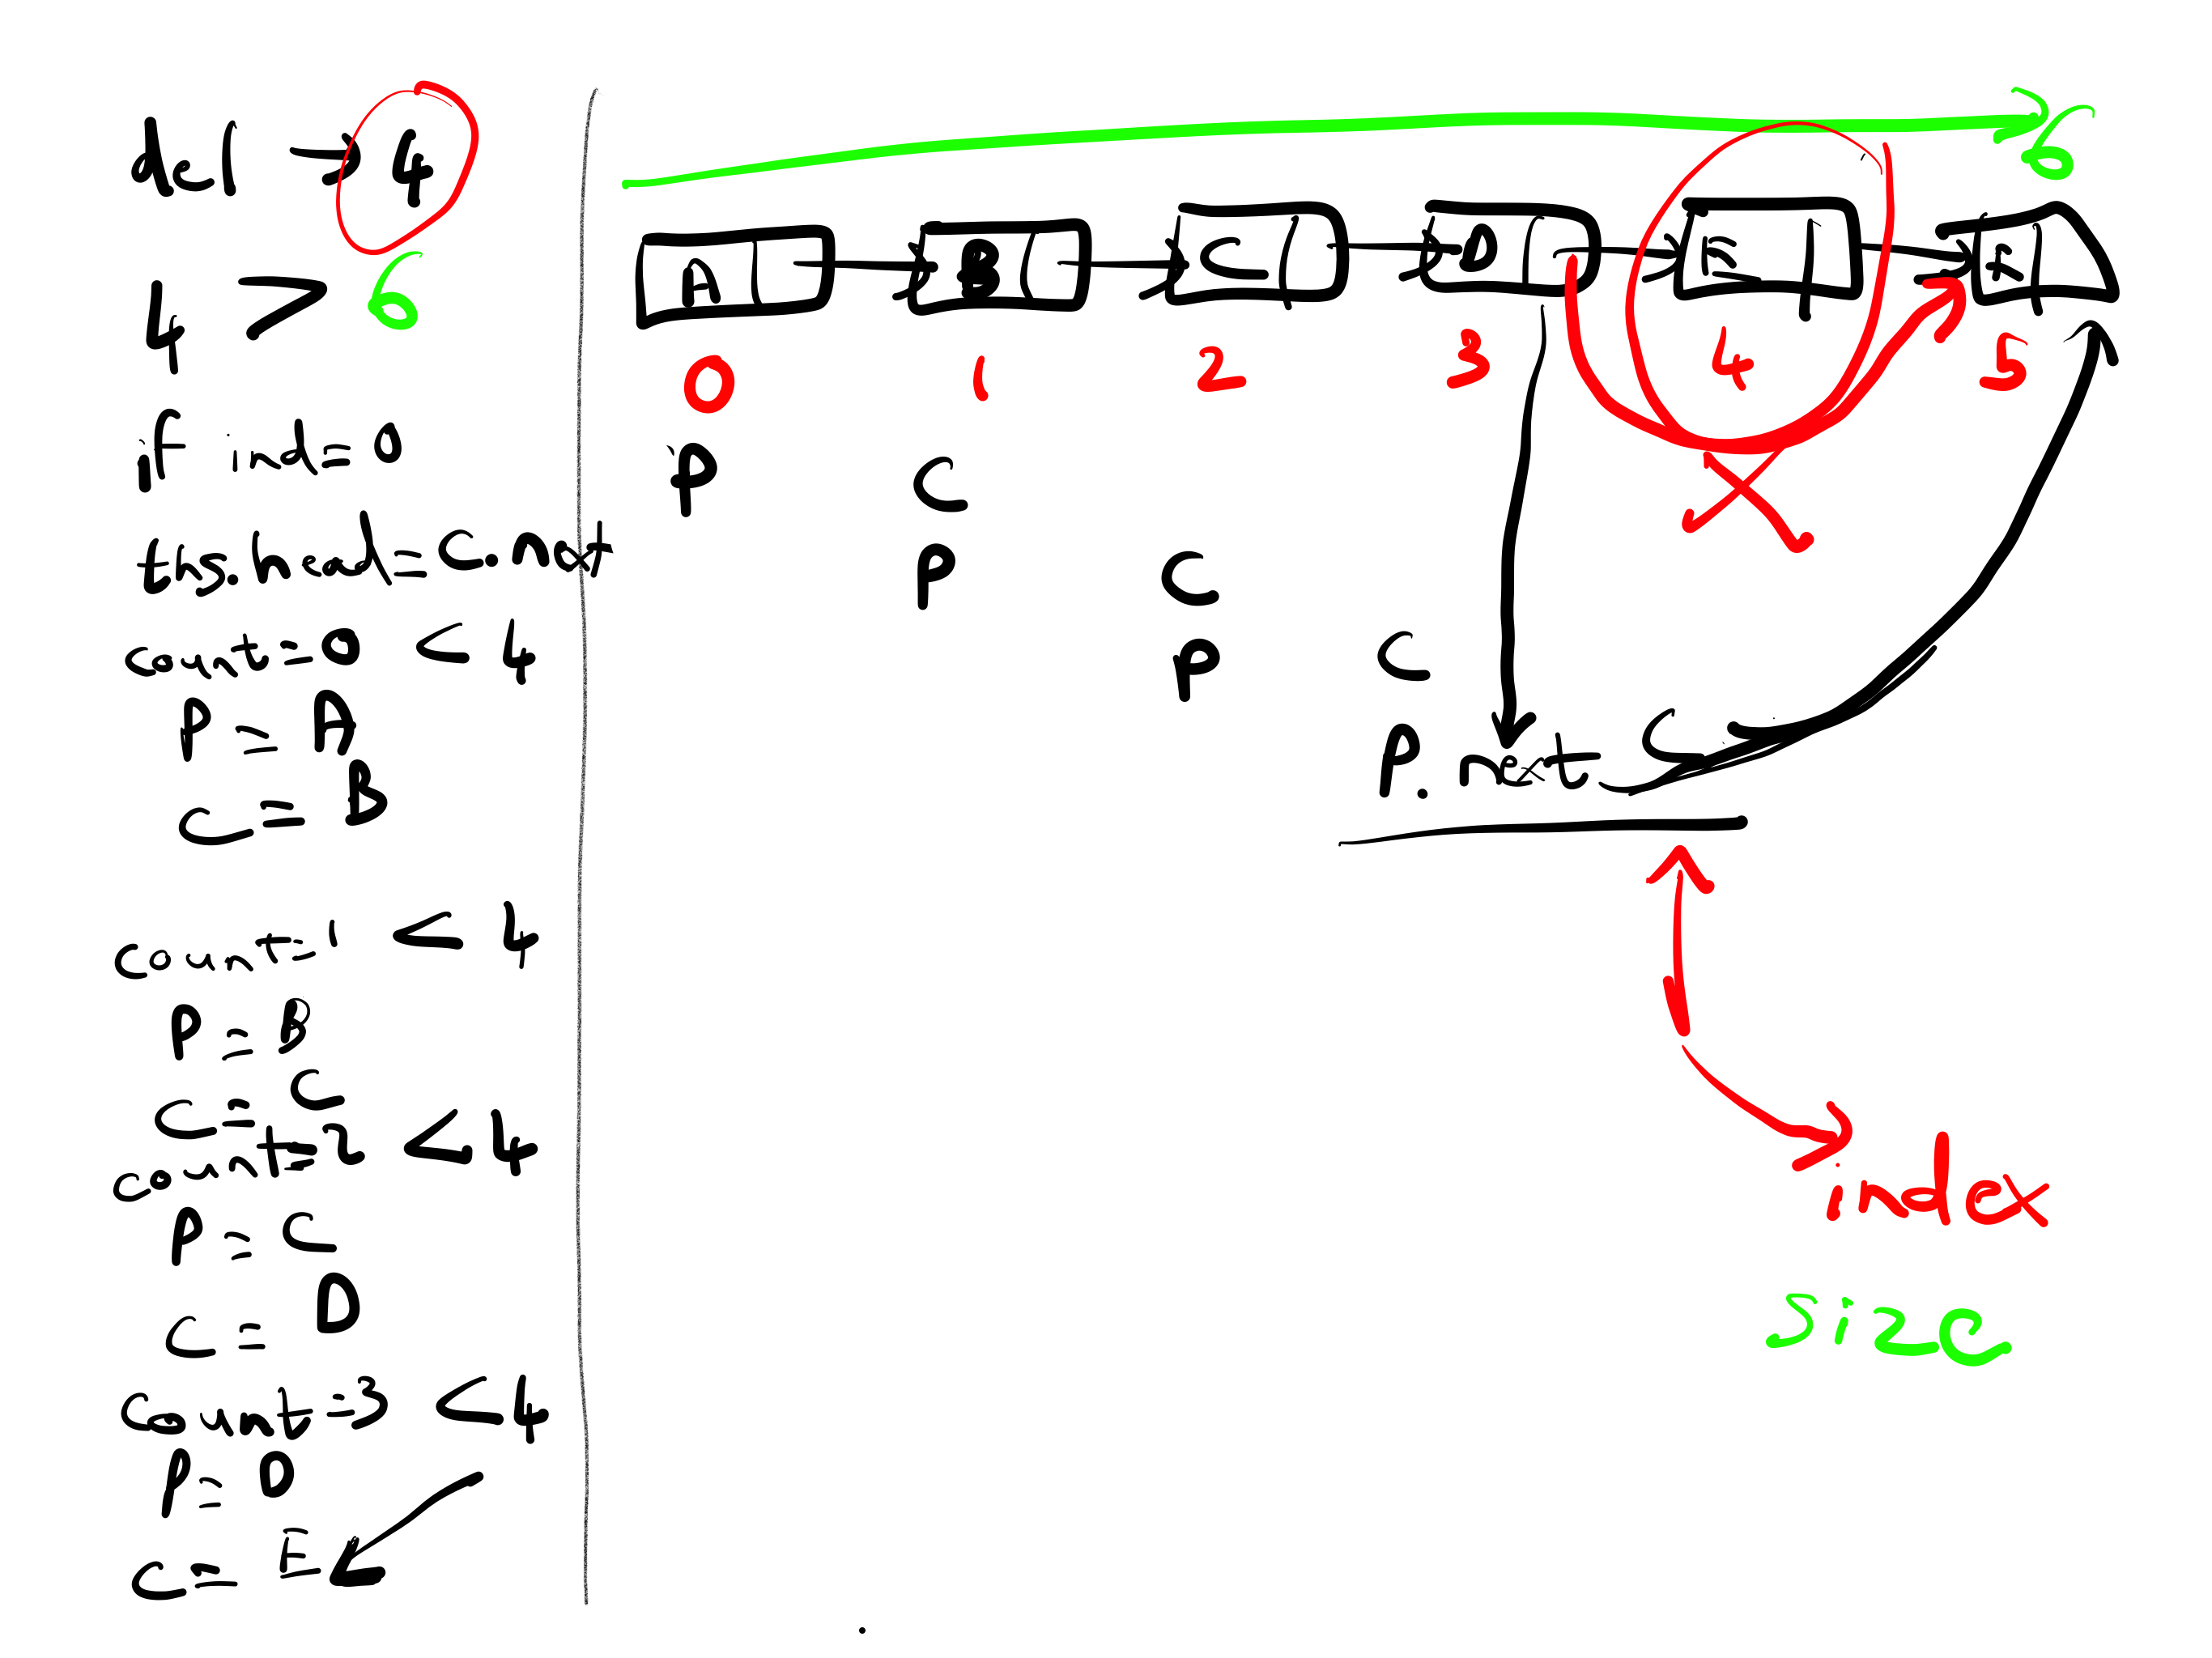 del → 4
4 > 6
if ind = 0
ths.head = C.next
count = 0 < 4
P = A
C = B
count = 1 < 4
P = B
C = C
count = 2 < 4
P = C
C = D
count = 3 < 4
P = D
C = E
6
A B C D E F
0 1 2 3 4 5
P C
P C
P C
P. next C
index
Size